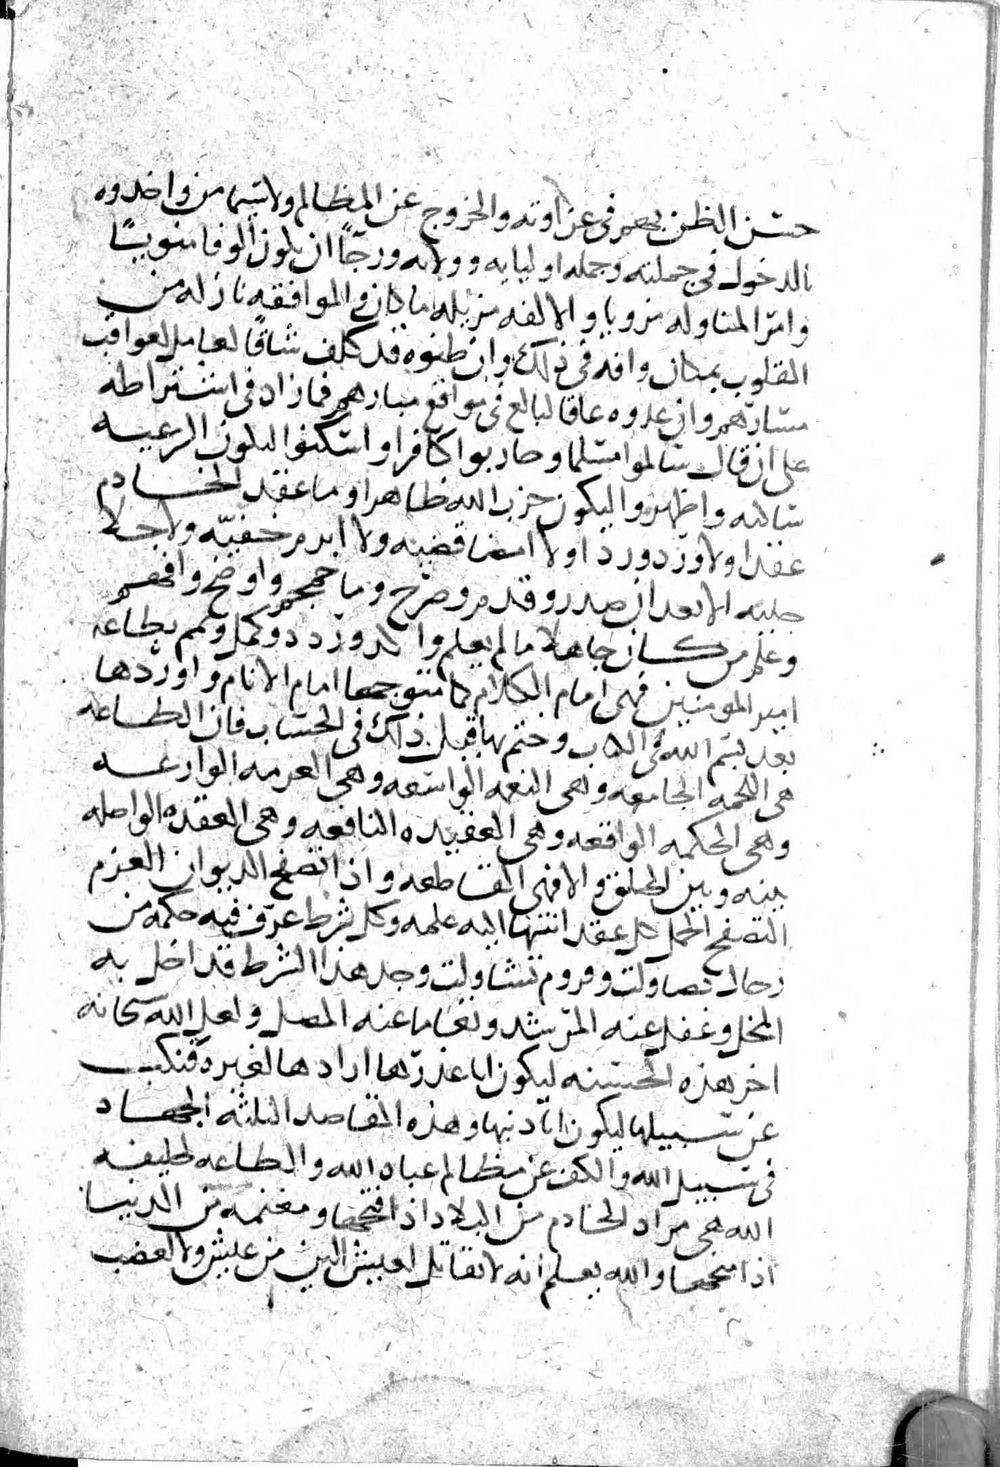 حسن الظن بهم في عداوته والخروج عن المظالم ولا سيما من واخدوه
بالدخول في جملته وجمله اوليايه وولايه ورجا ان يكون الوفا منويا
وامر المناوله مزويا والالفه مزيله اما كان والموافقه نازله من
القلوب بمكان وافه في ذلك وان ظنوه قد كلف شاقا لعامل لعواقب
مسارهم وان عدوه عاقا لبالع في مواقع مبارهم فما زاد في اشتراطه
على ان قال سالموا مسلما وحاربوا كافرا واستكفوا لتكون الرعيه
ساكنه واظهروا ليكون حزب الله ظاهرا وما عقد الخادم
عقدا ولا ورد وردا ولا امضا قضيه ولا ابرم خفيه ولا جلا
جليه الا بعد ان صدر وقدم وصرح وما جمجم واوضح وافهم
وعلم من كان جاهلا ما لم يعلم وا وردد وكمل وتمم بطاعه
امير المومنين فهى امام الكلام كما متوجهها امام الانام واوردها
بعد بسم الله في الكتاب وختم بها قبل ذلك في الحساب فان الطاعه
هي اللحمه الجامعه وهى النعمه الواسعه وهى العزمه الوازعه
وهى الحكمه الواقعه وهى العقيده النافعه وهى العقده الواصله
بينه وبين الخلق والافهى القاطعه واذا تصفح الديوان العزم
التصفح الحمل كل عقد انتها اليه علمه وكل شرط عرف فيه حكمه من
رجال تصاولت وقروم تشاولت وجد هذا الشرط قد اخل به
المخل وغفل عنه المرشد وتعاما عنه المصل ولعل الله سبحانه
اخر هذه الحسنه ليكون ابا عذرتها ارادها لغيره فنكب
عن سبيلها ليكون ادنيها وهذه المقاصد الثلثه الجهاد
في سبيل الله والكف عن مظالم عباد الله والطاعه لخليفه
الله هي مراد الخادم من البلاد اذا فتحها ومغنمه من الدنيا
اذا منحها والله يعلم انه لا يقاتل لعيش الين من عيش ولا لغضب